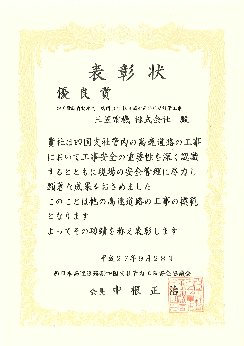 表彰状
優良賞
三笠電機 株式会社 殿
貴社は四国支社管内の高速道路の工事
において工事安全の重要性を深く認識
するとともに現場の安全管理に尽力し
顕著な成果をおさめました
このことは他の高速道路の工事の模範
となります
よってその功績を称え表彰します
平成27年9月28日
会長 中根正治